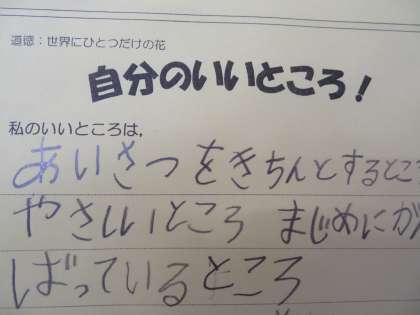 道徳：世界にひとつだけの花
自分のいいところ！
私のいいところは，
あいさつをきちんとするところ
やさしいところ　まじめにが
ばっているところ